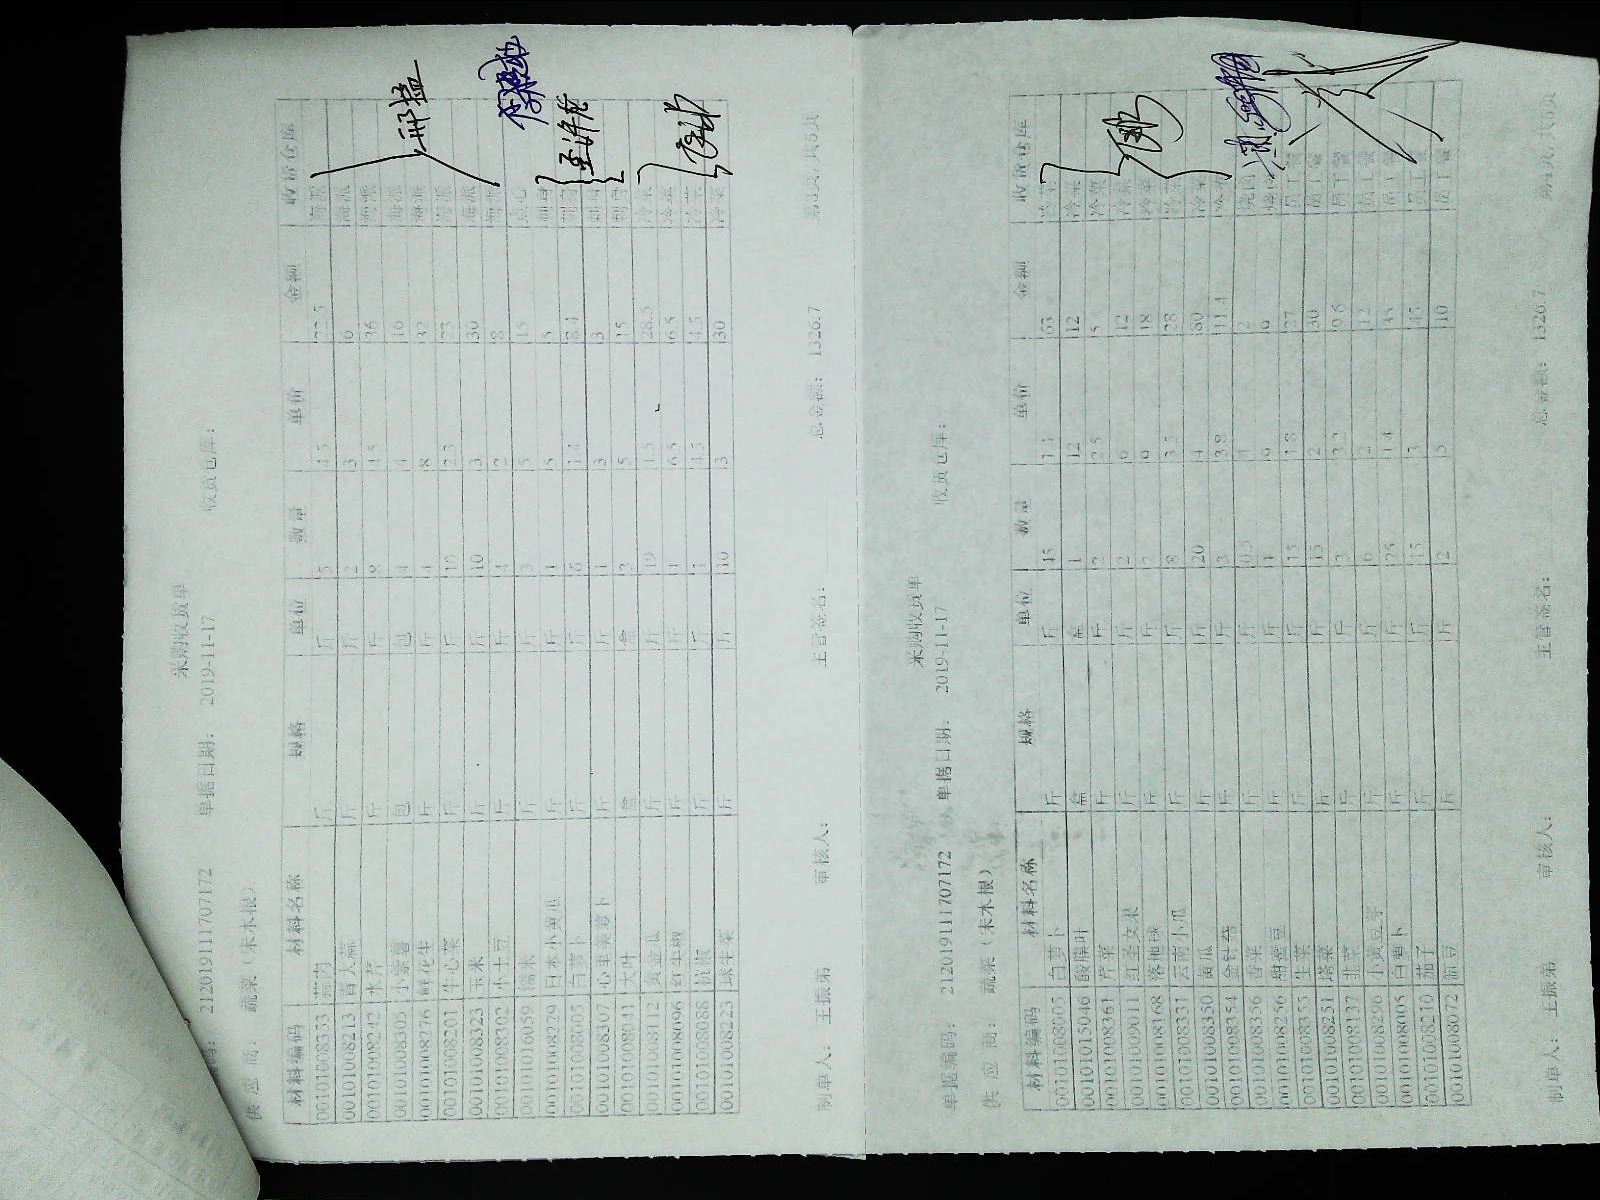 采购收货单
212019111707172 单据日期: 2019-11-17 收货仓库:
供 应 商: 蔬菜(宋木根)
材料编码 材料名称 规格 单位 数量 单价 金额 收价仓库
001010108353 斤 斤 5 4.5 22.5 海派
001010108213 斤 斤 2 3 6 海派
001010108242 斤 斤 8 4.5 36 海派
001010108305 小紫薯 包 包 4 4 16 海派
001010108276 鲜花生 斤 斤 4 8 32 海派
001010108201 牛心菜 斤 斤 10 2.3 23 海派
001010108323 玉米 斤 斤 10 3 30 海派
001010108302 小土豆 斤 斤 4 2 8 海派
001010116059 糯米 斤 斤 3 5 15 点心
001010108279 日本小黄瓜 斤 斤 1 5 5
001010108005 白萝卜 斤 斤 6 1.4 8.4
001010108307 心里美萝卜 斤 斤 1 3 3
001010108041 大叶 盒 盒 3 5 15
001010108112 黄金瓜 斤 斤 19 1.5 28.5 冷菜
001010108096 红尖椒 斤 斤 1 6.5 6.5 冷菜
001010108088 杭椒 斤 斤 1 4.5 4.5 冷菜
001010108223 球生菜 斤 斤 10 3 30 冷菜
总金额: 1326.7
制单人: 王振弟 审核人: 主管签名: 第3页/共5页
采购收货单
单据编码: 212019111707172 单据日期: 2019-11-17 收货仓库:
供 应 商: 蔬菜(宋木根)
材料编码 材料名称 规格 单位 数量 单价 金额 收价仓库
001010108005 白萝卜 斤 斤 45 1.4 63 冷菜
001010115046 酸膜叶 盒 盒 1 12 12 冷菜
001010108361 芹菜 斤 斤 2 2.5 5 冷菜
001010109011 红圣女果 斤 斤 2 6 12 冷菜
001010108168 落地球 斤 斤 2 9 18 冷菜
001010108331 云南小瓜 斤 斤 8 3.5 28 冷菜
001010108350 黄瓜 斤 斤 20 4 80 冷菜
001010108354 金针菇 斤 斤 3 3.8 11.4 冷菜
001010108356 香菜 斤 斤 0.5 4 2 烧肉
001010108256 甜蜜豆 斤 斤 1 9 9
001010108355 生菜 斤 斤 15 1.8 27 员工餐
001010108251 塔菜 斤 斤 15 2 30 员工餐
001010108137 韭菜 斤 斤 3 3.2 9.6 员工餐
001010108296 小黄豆芽 斤 斤 6 2 12 员工餐
001010108005 白萝卜 斤 斤 25 1.4 35 员工餐
001010108210 茄子 斤 斤 15 3 45 员工餐
001010108072 斤 斤 2 5 10 员工餐
总金额: 1326.7
制单人: 王振弟 审核人: 主管签名: 第4页/共5页